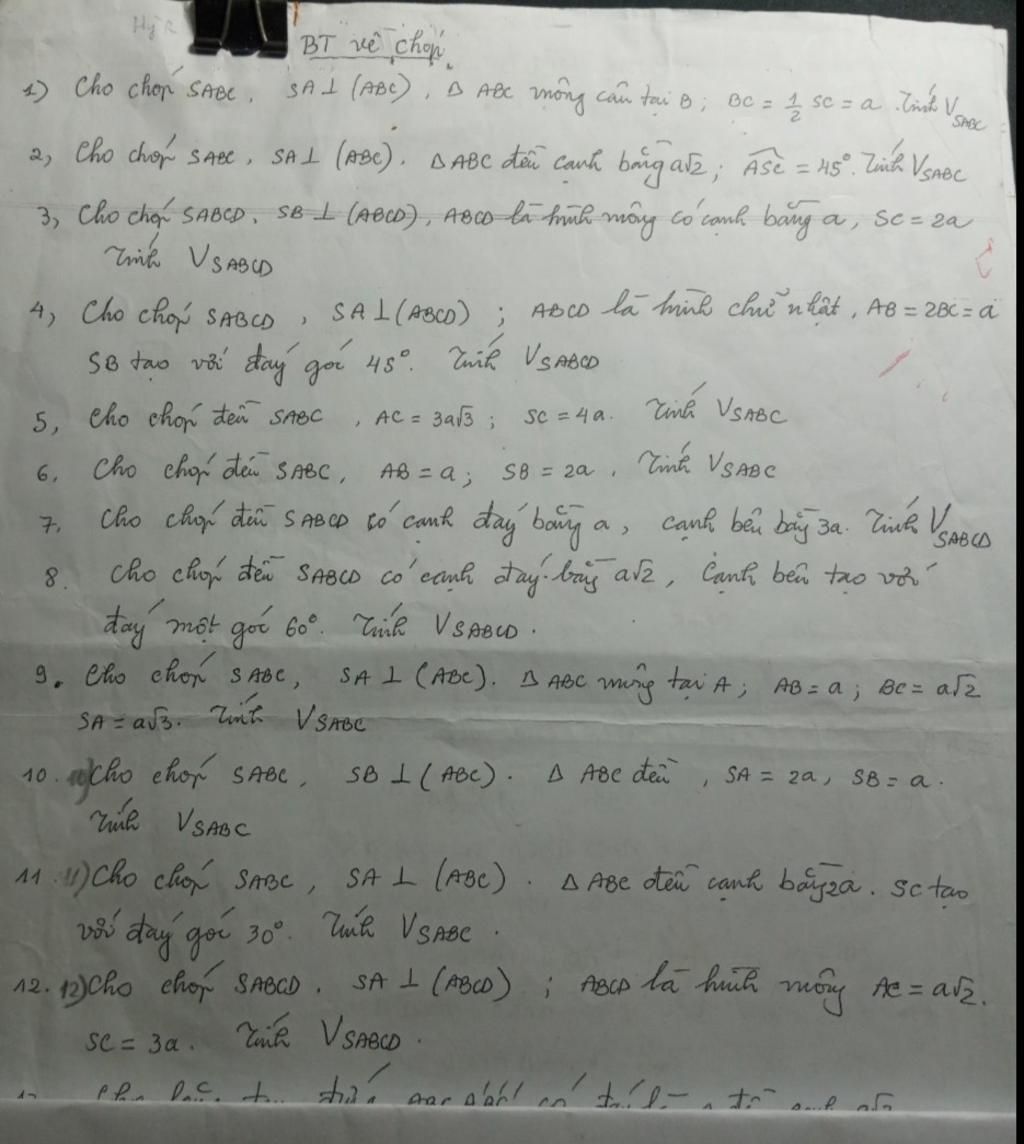 BT về chóp
1) Cho chóp SABC, SA ⊥ (ABC), Δ ABC vuông cân tại B; BC = 1/2 SC = a. Tính V_SABC
2, Cho chóp SABC, SA ⊥ (ABC). Δ ABC đều cạnh bằng a√2; ASC = 45°. Tính V_SABC
3, Cho chóp SABCD, SB ⊥ (ABCD), ABCD là hình vuông có cạnh bằng a, SC = 2a
Tính V_SABCD
4, Cho chóp SABCD, SA ⊥ (ABCD); ABCD là hình chữ nhật, AB = 2BC = a
SB tạo với đáy góc 45°. Tính V_SABCD
5, Cho chóp đều SABC, AC = 3a√3; SC = 4a. Tính V_SABC
6. Cho chóp đều SABC, AB = a; SB = 2a. Tính V_SABC
7. Cho chóp đều SABCD có cạnh đáy bằng a, cạnh bên bằng 3a. Tính V_SABCD
8. Cho chóp đều SABCD có cạnh đáy bằng a√2, cạnh bên tạo với
đáy một góc 60°. Tính V_SABCD.
9. Cho chóp SABC, SA ⊥ (ABC). Δ ABC vuông tại A; AB = a; BC = a√2
SA = a√3. Tính V_SABC
10. Cho chóp SABC, SB ⊥ (ABC). Δ ABC đều, SA = 2a, SB = a.
Tính V_SABC
11. 11) Cho chóp SABC, SA ⊥ (ABC). Δ ABC đều cạnh bằng 2a. SC tạo
với đáy góc 30°. Tính V_SABC.
12. 12) Cho chóp SABCD. SA ⊥ (ABCD); ABCD là hình vuông AC = a√2.
SC = 3a. Tính V_SABCD.